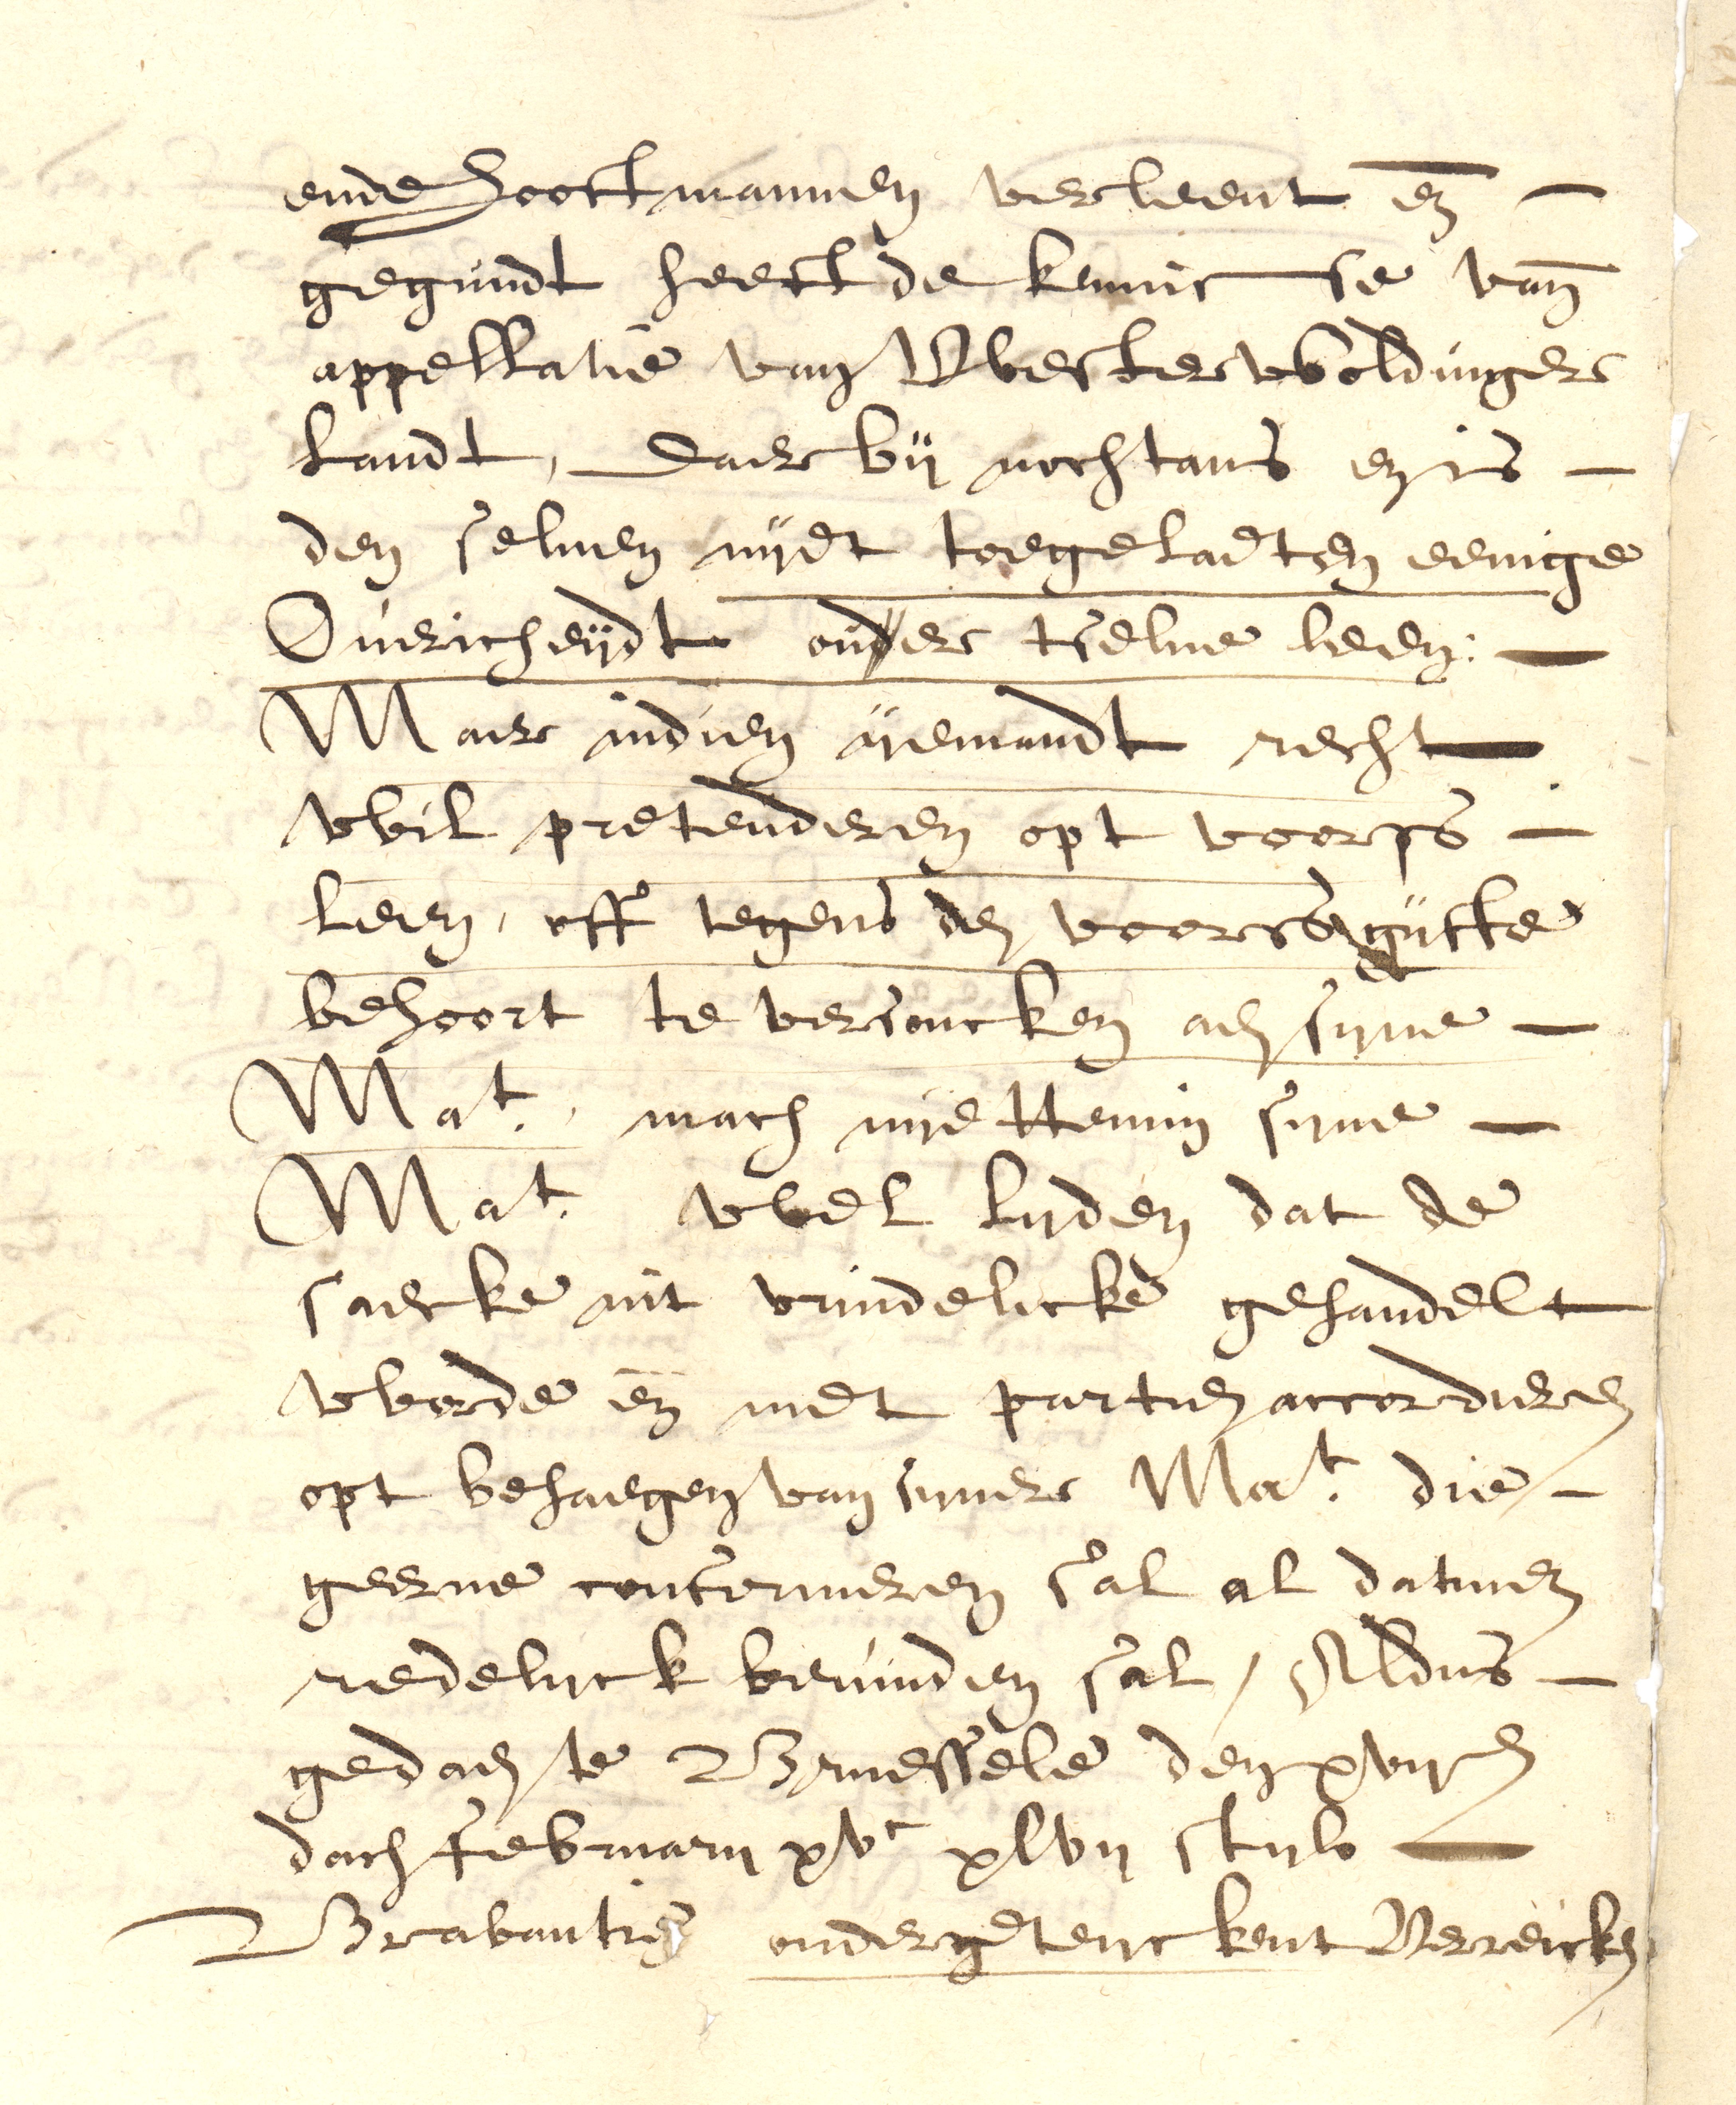 ende Hooftmannen verleent en̄
gegundt heeft de kennisse van̄
appellatie van Westerwoldinger
landt, daer bij nochtans en is
den seluen nyet toegelaeten eenige
Ouericheijdt onder tselue leen:
Maer indien ijemandt recht
wil pretenderen opt voors
leen, off tegens den voors
behoort te versoucken aen syne
Mat., mach nyettemin syne
Mat. wel lyden dat de
saecke int vrindelicke gehandelt
worde en̄ met partien accorderen
opt behaegen van syner Mat. die
geerne confermeren sal al datmen
redelyck beuinden sal / Aldus
gedaen te Bruessele den xvijen
dach februarij xvc xlvij stylo
Brabantie ondergeteyckent Verreicken